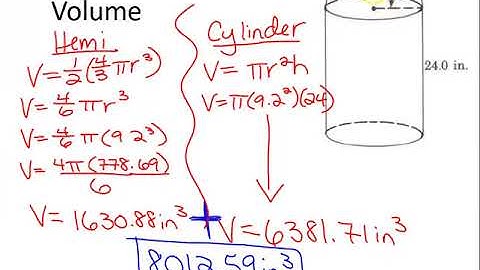 Volume
Hemi
V = 1/2 (4/3 πr³)
V = 4/6 πr³
V = 4/6 π(9.2³)
V = 4π(778.69)/6
V = 1630.88in³
+
Cylinder
V = πr²h
V = π(9.2²)(24)
V = 6381.71in³
8012.59in³
24.0 in.